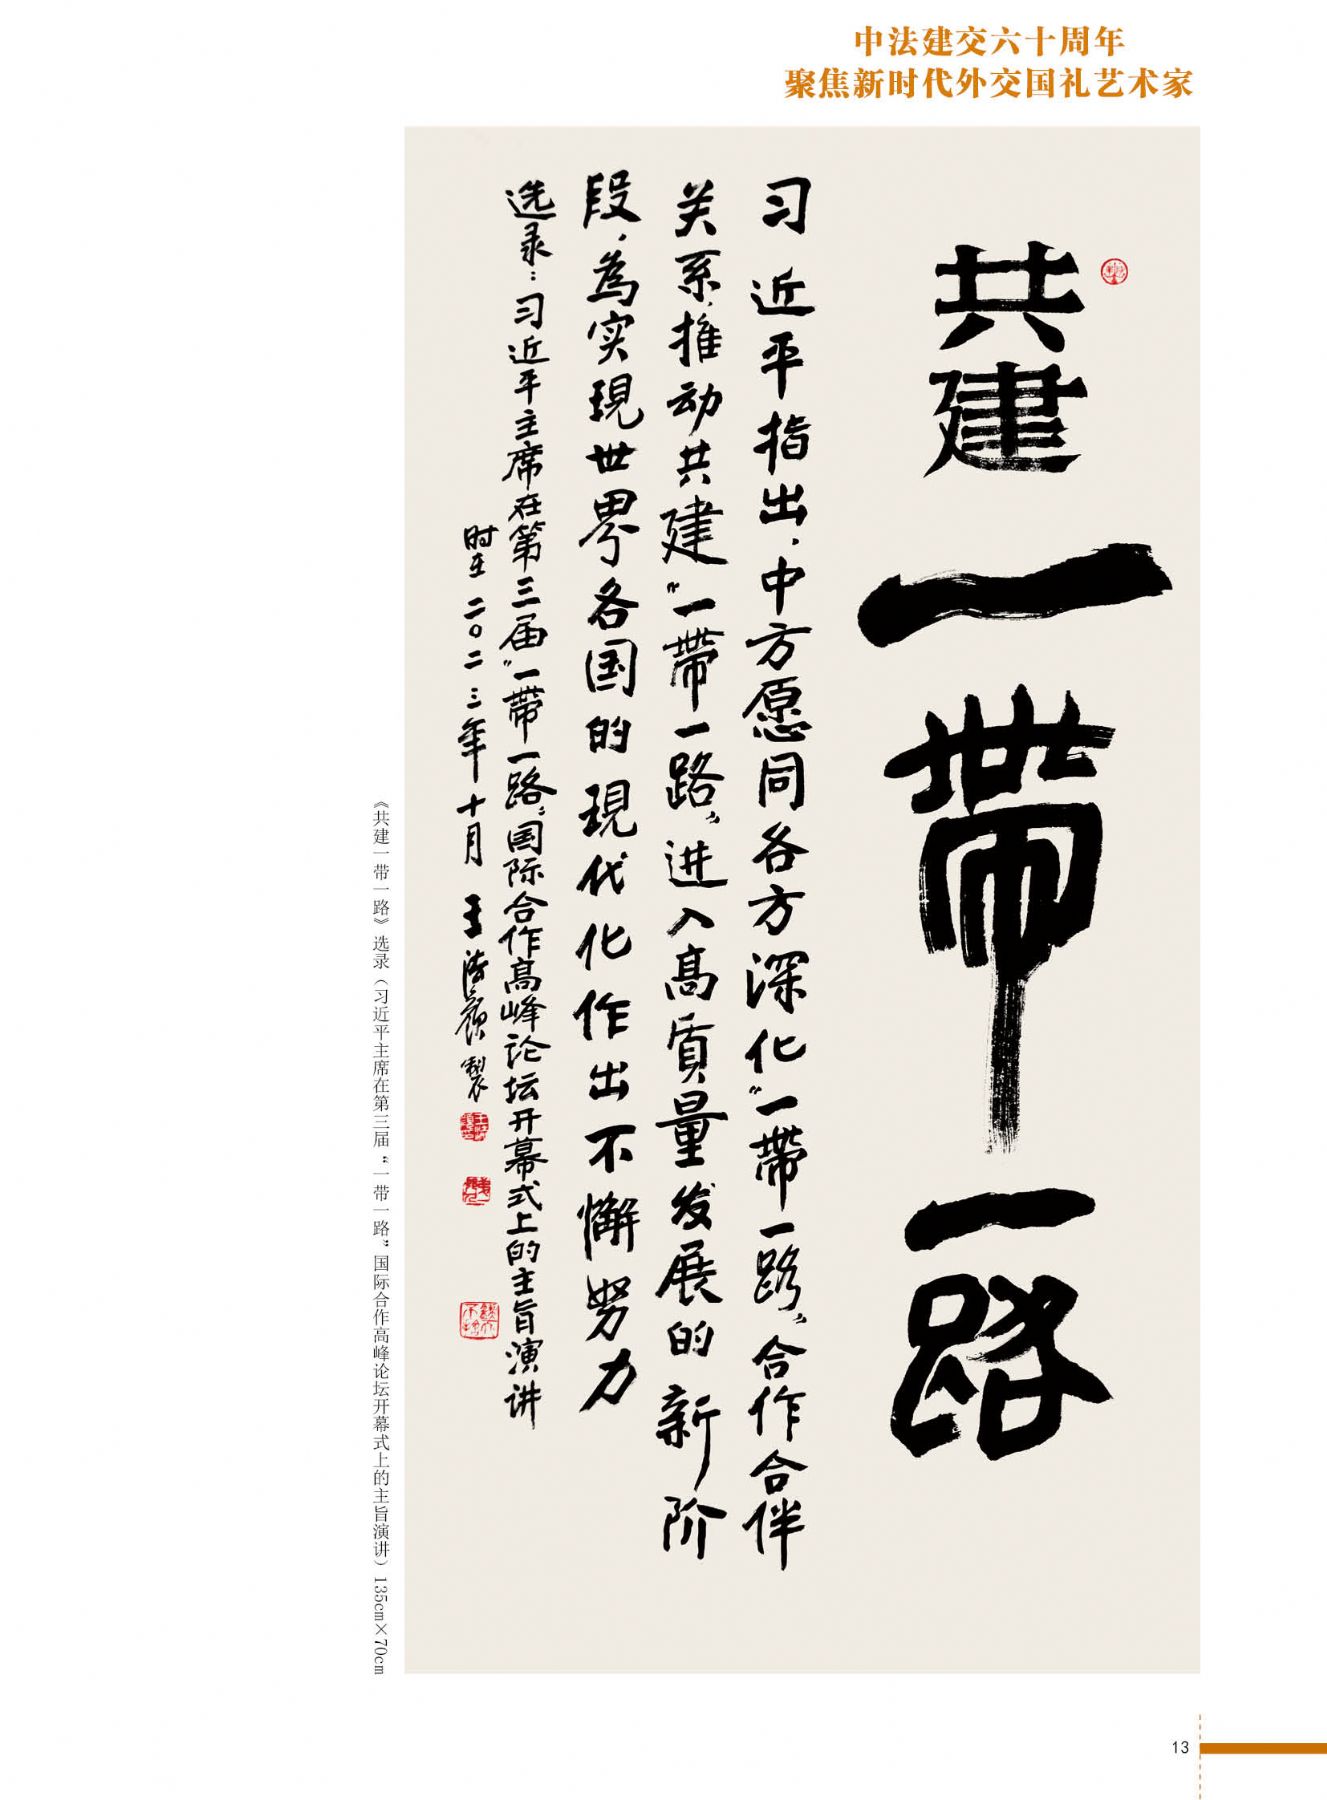 中法建交六十周年
聚焦新时代外交国礼艺术家
共建一帶一路
习近平指出，中方愿同各方深化“一帶一路”合作合伴
关系，推动共建“一帶一路”，进入高质量发展的新阶
段，為实現世界各国的現代化作出不懈努力
选录：习近平主席在第三届“一帶一路”国际合作高峰论坛开幕式上的主旨演讲
时在二〇二三年十月 王 製
《共建一带一路》选录（习近平主席在第三届“一带一路”国际合作高峰论坛开幕式上的主旨演讲）135cm×70cm
13